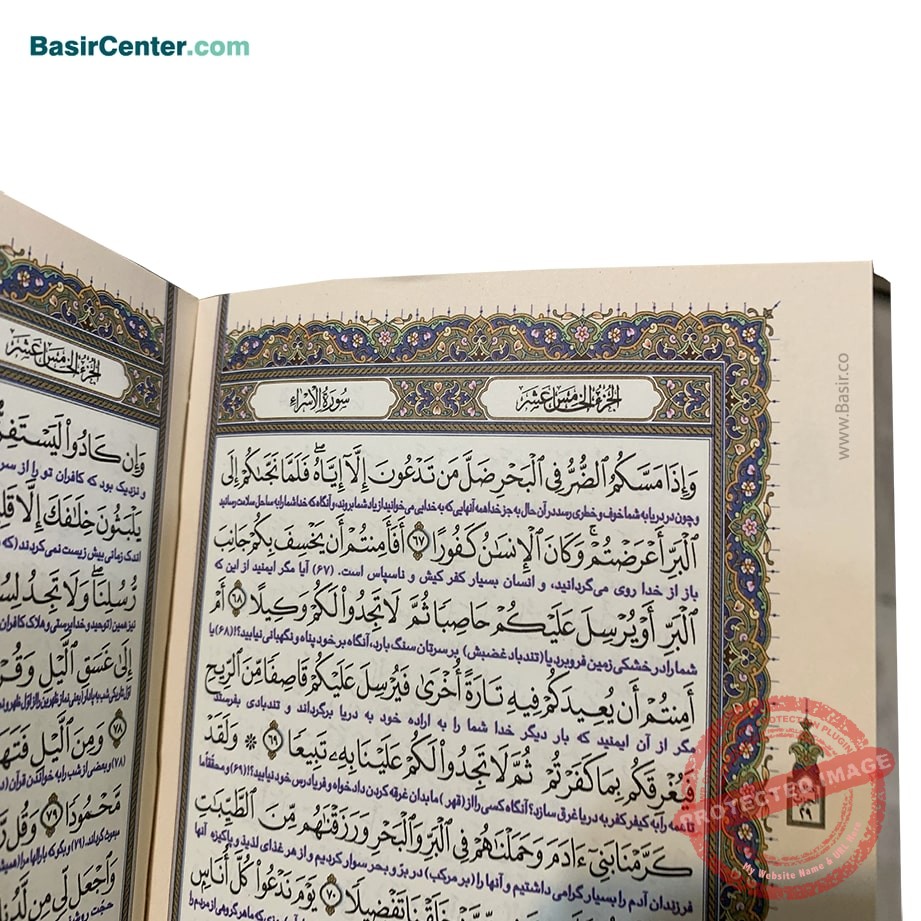 BasirCenter.com
الجزء الخامس عشر
سورة الإسراء
وَإِذَا مَسَّكُمُ الضُّرُّ فِي الْبَحْرِ ضَلَّ مَن تَدْعُونَ إِلَّا إِيَّاهُ ۖ فَلَمَّا نَجَّىٰكُمْ إِلَى
و چون در دریا به شما خوف و خطری رسد در آن حال به جز خدا همه آنهایی که به خدایی می‌خوانید از یاد شما بروند، و آنگاه که خدا شما را به ساحل سلامت رسانید
الْبَرِّ أَعْرَضْتُمْ ۚ وَكَانَ الْإِنسَٰنُ كَفُورًا ﴿٦٧﴾ أَفَأَمِنتُمْ أَن يَخْسِفَ بِكُمْ جَانِبَ
باز از خدا روی می‌گردانید، و انسان بسیار کفر کیش و ناسپاس است. (۶۷) آیا مگر ایمنید از این که
الْبَرِّ أَوْ يُرْسِلَ عَلَيْكُمْ حَاصِبًا ثُمَّ لَا تَجِدُوا لَكُمْ وَكِيلًا ﴿٦٨﴾ أَمْ
شما را در خشکی زمین فرو برد یا (تندباد غضبش) بر سرتان سنگ بارد، آنگاه بر خود پناه و نگهبانی نیابید؟! (۶۸) یا
أَمِنتُمْ أَن يُعِيدَكُمْ فِيهِ تَارَةً أُخْرَىٰ فَيُرْسِلَ عَلَيْكُمْ قَاصِفًا مِّنَ الرِّيحِ
مگر از آن ایمنید که بار دیگر خدا شما را به اراده خود به دریا برگرداند و تندبادی بفرستد
فَيُغْرِقَكُم بِمَا كَفَرْتُمْ ثُمَّ لَا تَجِدُوا لَكُمْ عَلَيْنَا بِهِ تَبِيعًا ﴿٦٩﴾ ۞ وَلَقَدْ
تا همه را به کیفر کفر به دریا غرق سازد؟ آنگاه کسی را از (قهر) ما بدان غرقه کردن دادخواه و فریادرس خود نیابید؟! (۶۹) و محققا ما
كَرَّمْنَا بَنِي ءَادَمَ وَحَمَلْنَٰهُمْ فِي الْبَرِّ وَالْبَحْرِ وَرَزَقْنَٰهُم مِّنَ الطَّيِّبَٰتِ
فرزندان آدم را بسیار گرامی داشتیم و آنها را (بر مرکب) در بر و بحر سوار کردیم و از هر غذای لذیذ و پاکیزه آنها
خَلَقْنَا تَفْضِيلًا ﴿٧٠﴾ يَوْمَ نَدْعُوا كُلَّ أُنَاسٍ
الجزء الخامس عشر
وَإِن كَادُوا لَيَسْتَفِزُّ
و نزدیک بود که کافران تو را از سر
يَلْبَثُونَ خِلَٰفَكَ إِلَّا قَلِ
اندک زمانی بیش زیست نمی‌کردند (که
رُّسُلِنَا ۖ وَلَا تَجِدُ لِسُ
إِلَىٰ غَسَقِ الَّيْلِ وَقُرْ
﴿٧٨﴾ وَمِنَ الَّيْلِ فَتَهَ
(۷۸) و بعضی از شب را به خواندن قرآن
مَّحْمُودًا ﴿٧٩﴾ وَقُل رَّ
وَاجْعَل لِّي مِن لَّدُن
www.Basir.co
PROTECTED IMAGE
My Website Name & URL Here